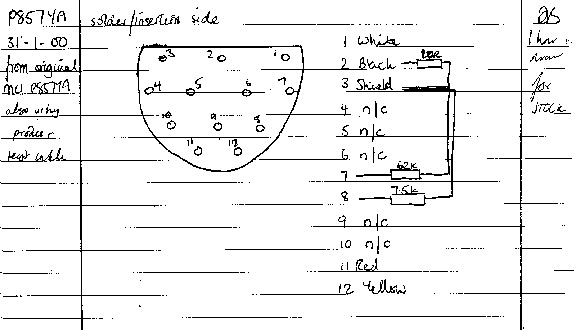 P8574A
31-1-00
from original
mc P8574A
also using
product
test cable
solder/insertion side
3 2 1
4 5 6 7
10 9 8
11 12
1 White
2 Black
3 Shield
4 n/c
5 n/c
6 n/c
7 62K
8 7.5K
9 n/c
10 n/c
11 Red
12 Yellow
1 hr
for